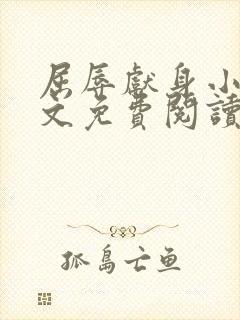 屈辱獻身小
文免費閱讀
孤島亡魚